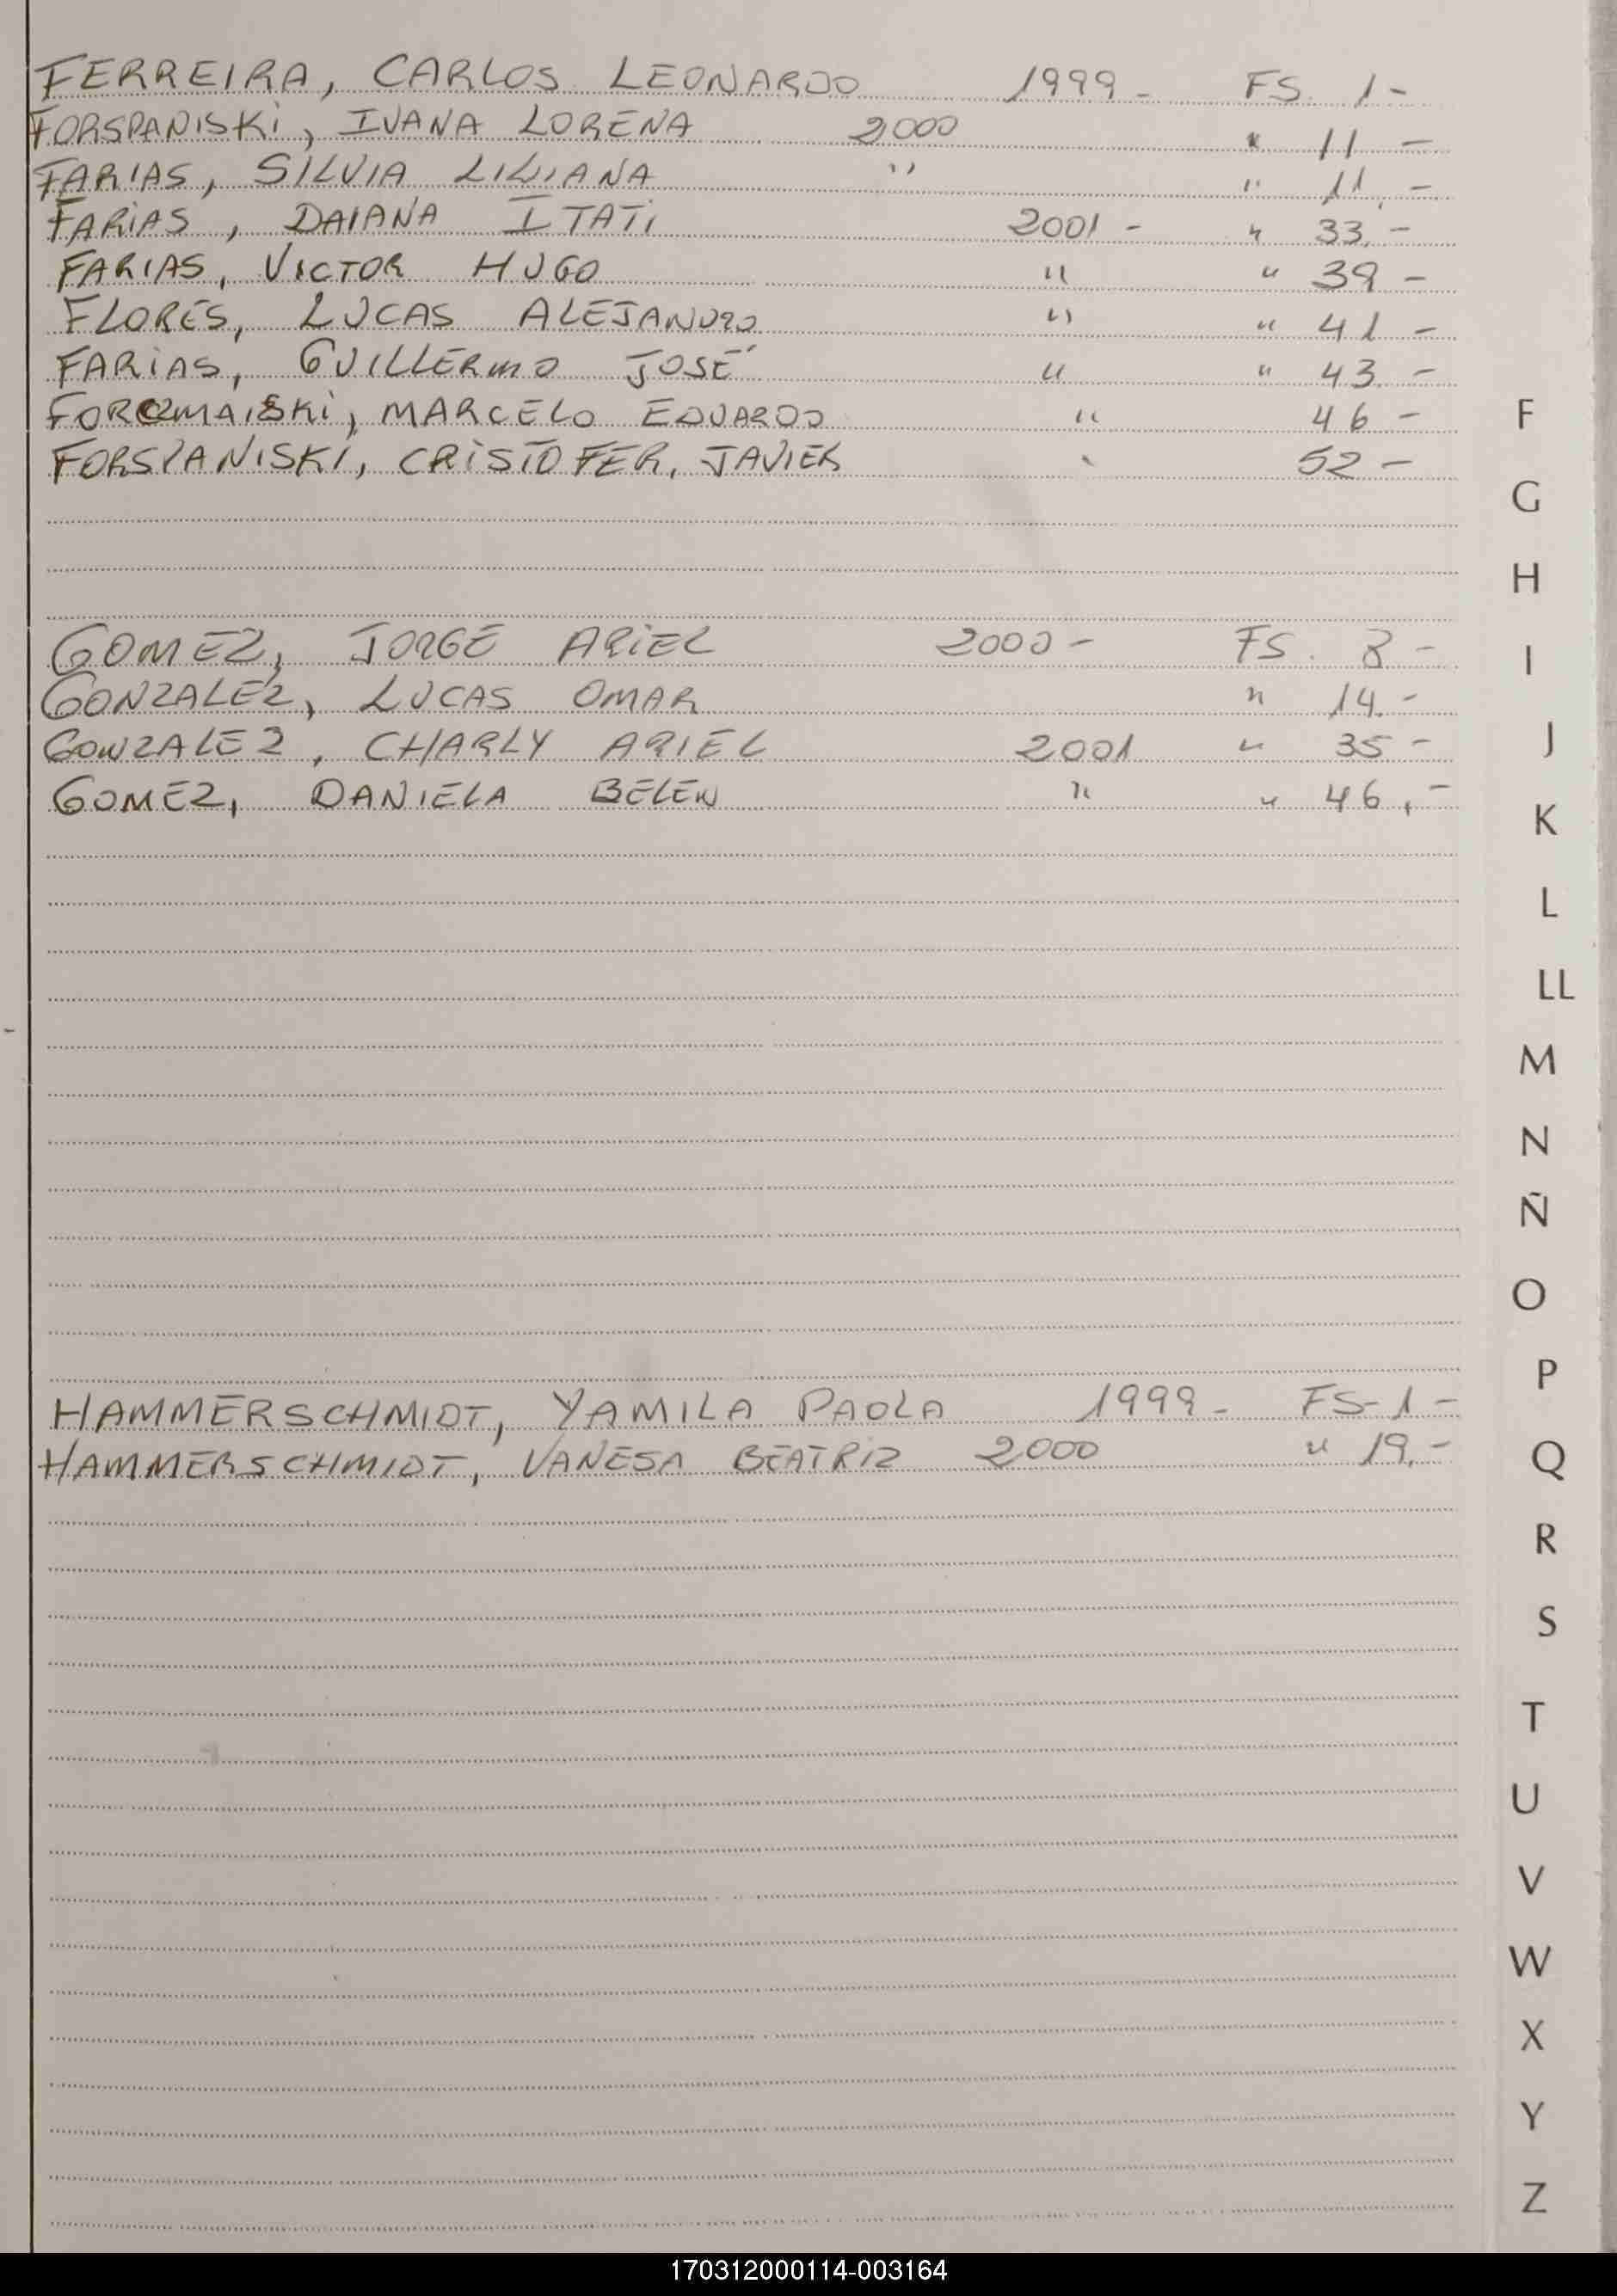 FERREIRA, CARLOS LEONARDO 1999 - FS. 1 -
FORSPANISKI, IVANA LORENA 2000 " 11 -
FARIAS, SILVIA LILIANA " " 11, -
FARIAS, DAIANA ITATI 2001 - " 33, -
FARIAS, VICTOR HUGO " " 39 -
FLORES, LUCAS ALEJANDRO " " 41 -
FARIAS, GUILLERMO JOSÉ " " 43. -
MARCELO EDUARDO " 46 -
FORSPANISKI, CRISTOFER, JAVIER 52 -
GOMEZ, JORGE ARIEL 2000 - FS. 8 -
GONZALEZ, LUCAS OMAR " 14. -
GONZALEZ, CHARLY ARIEL 2001 " 35 -
GOMEZ, DANIELA BELEN " " 46, -
HAMMERSCHMIDT, YAMILA PAOLA 1999 - FS - 1 -
HAMMERSCHMIDT, VANESA BEATRIZ 2000 " 19, -
F
G
H
I
J
K
L
LL
M
N
Ñ
O
P
Q
R
S
T
U
V
W
X
Y
Z
170312000114-003164